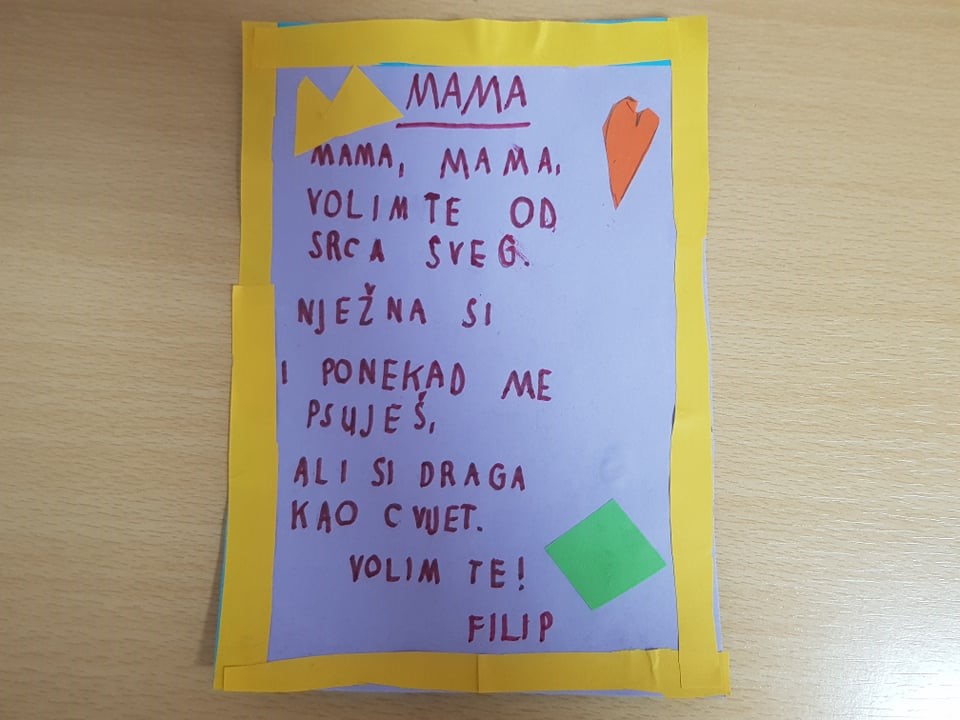 MAMA
MAMA, MAMA,
VOLIM TE OD
SRCA SVEG.
NJEŽNA SI
I PONEKAD ME
PSUJEŠ,
ALI SI DRAGA
KAO CVIJET.
VOLIM TE!
FILIP